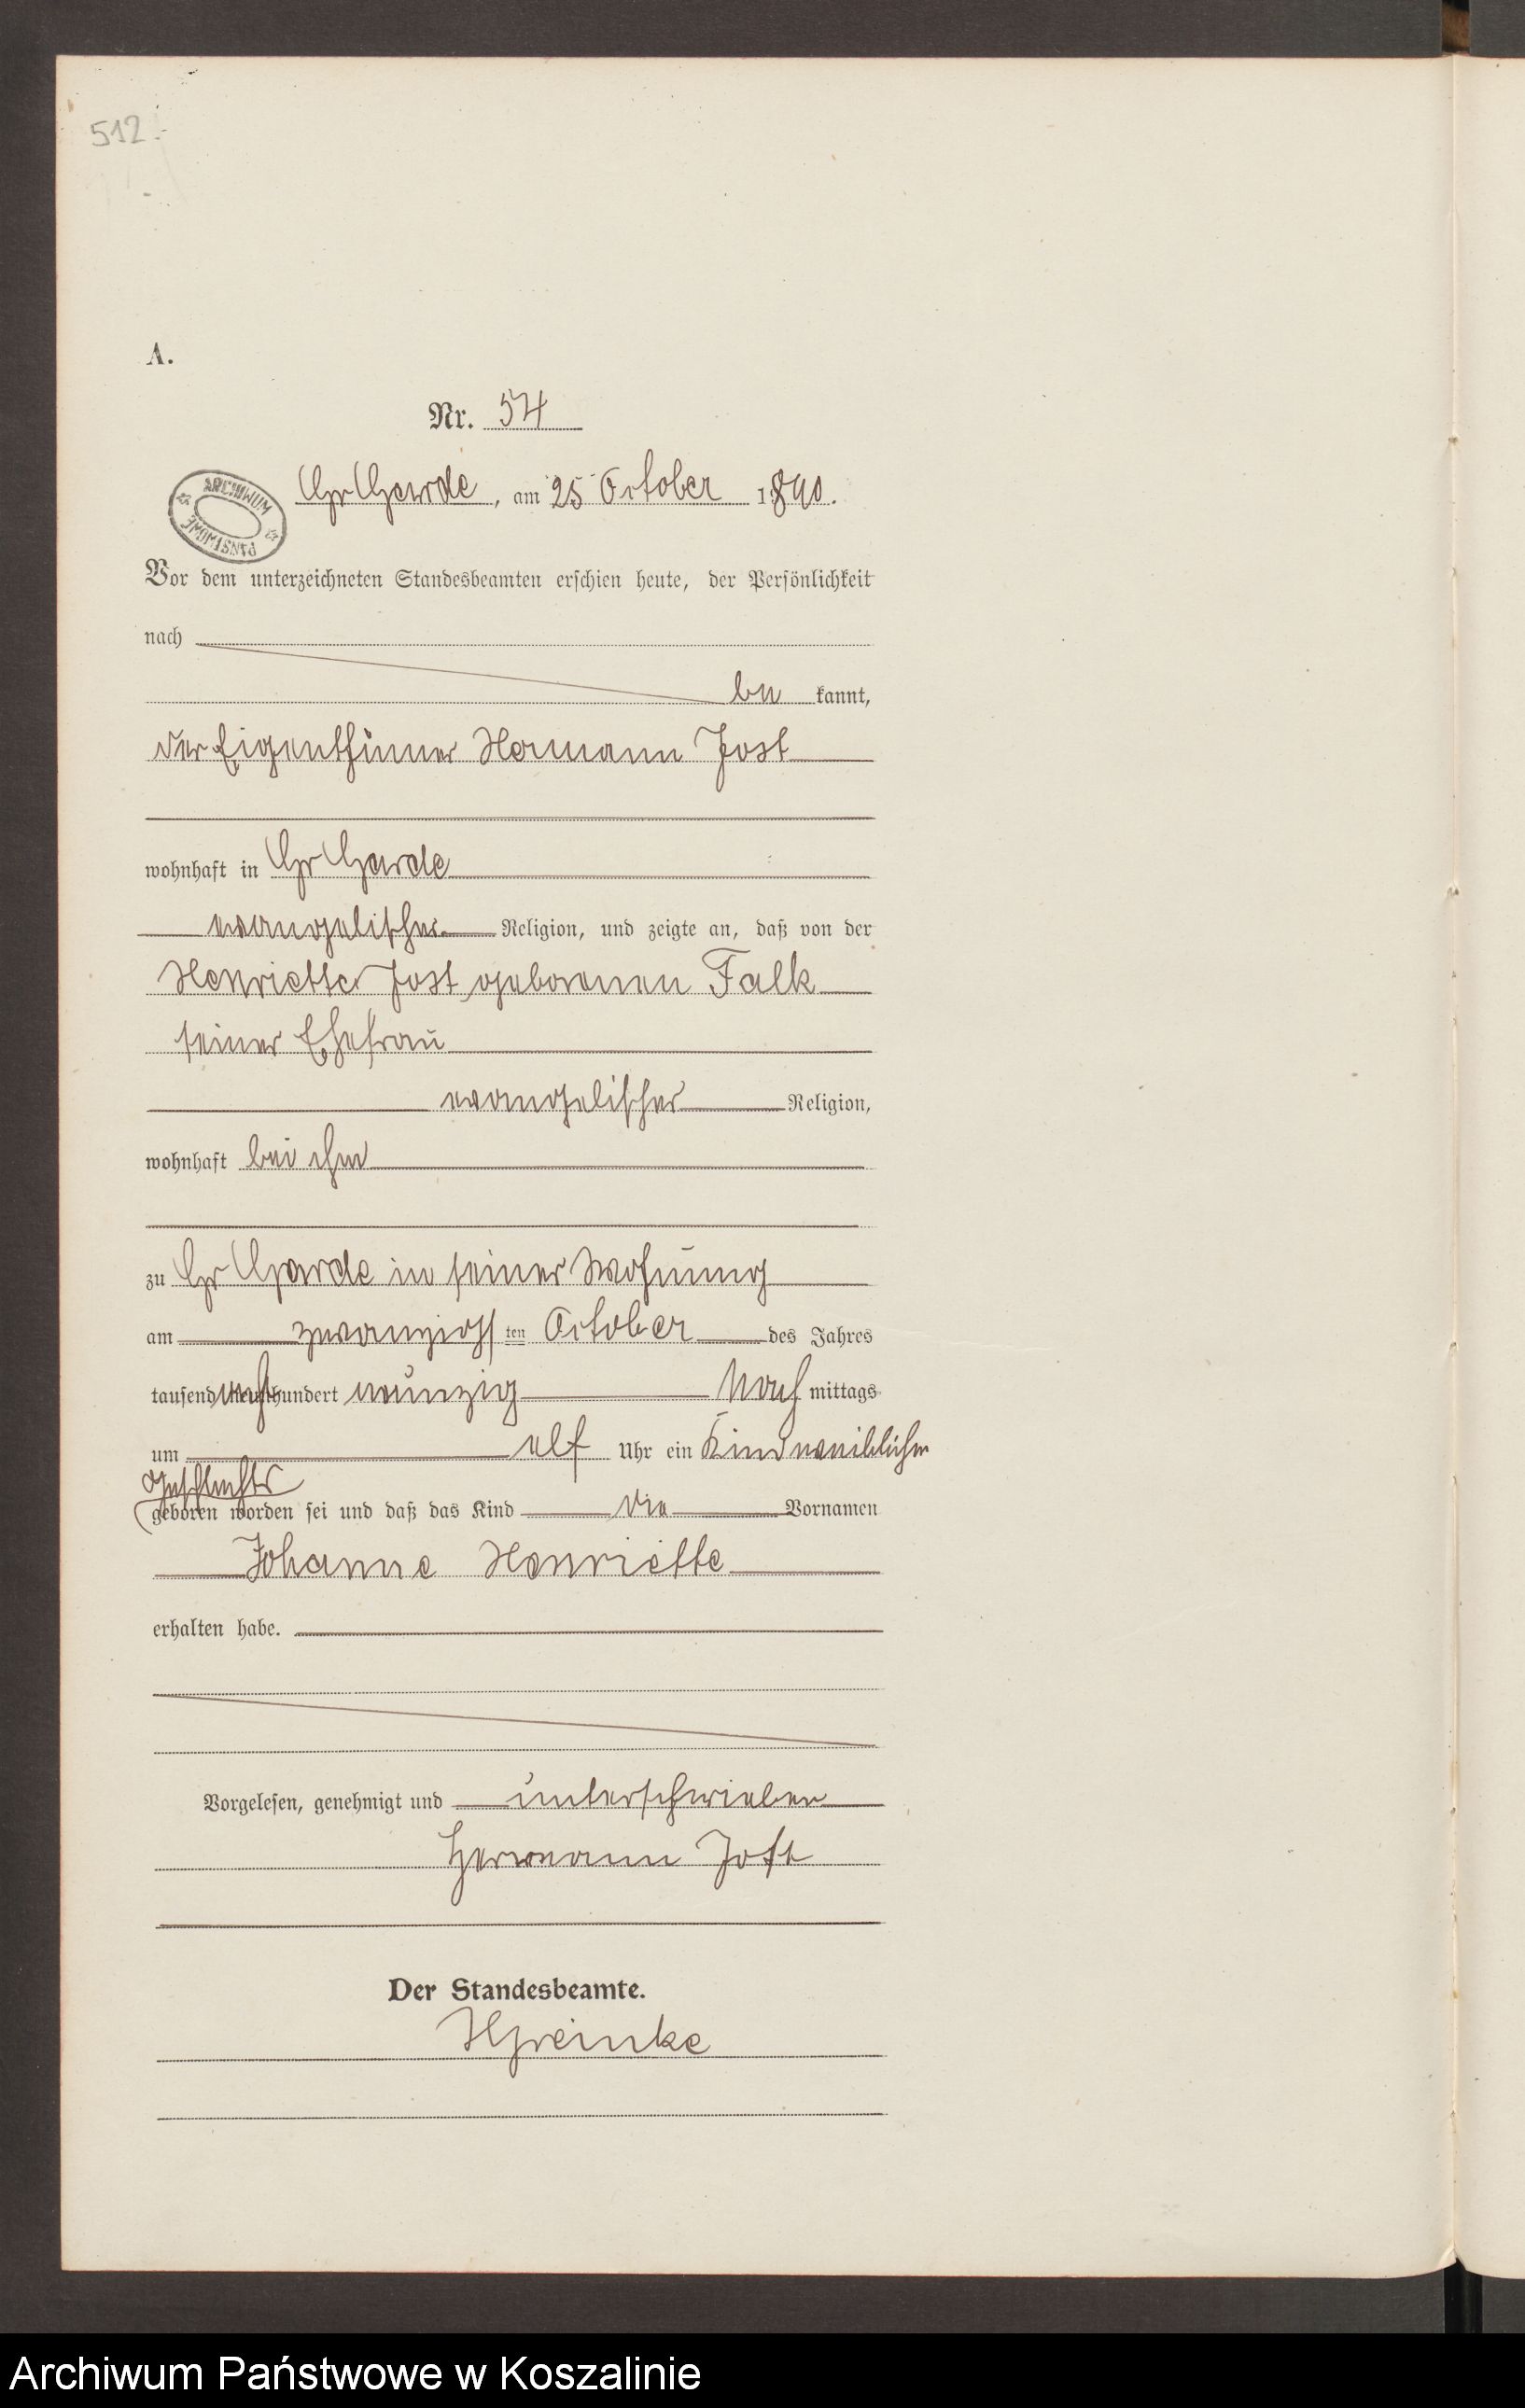 512.
A.
Nr. 54
ARCHIWUM PAŃSTWOWE
Gr Garde, am 25 October 1890.
Vor dem unterzeichneten Standesbeamten erschien heute, der Persönlichkeit
nach
be kannt,
der Eigenthümer Hermann Jost
wohnhaft in Gr Garde
evangelischer Religion, und zeigte an, daß von der
Henriette Jost geborenen Falk
seiner Ehefrau
evangelischer Religion,
wohnhaft bei ihm
zu Gr Garde in seiner Wohnung
am zwanzigsten October des Jahres
tausend acht hundert neunzig Nach mittags
um elf Uhr ein Kind weiblichen
Geschlechts
geboren worden sei und daß das Kind die Vornamen
Johanne Henriette
erhalten habe.
Vorgelesen, genehmigt und unterschrieben
Hermann Jost
Der Standesbeamte.
Archiwum Państwowe w Koszalinie